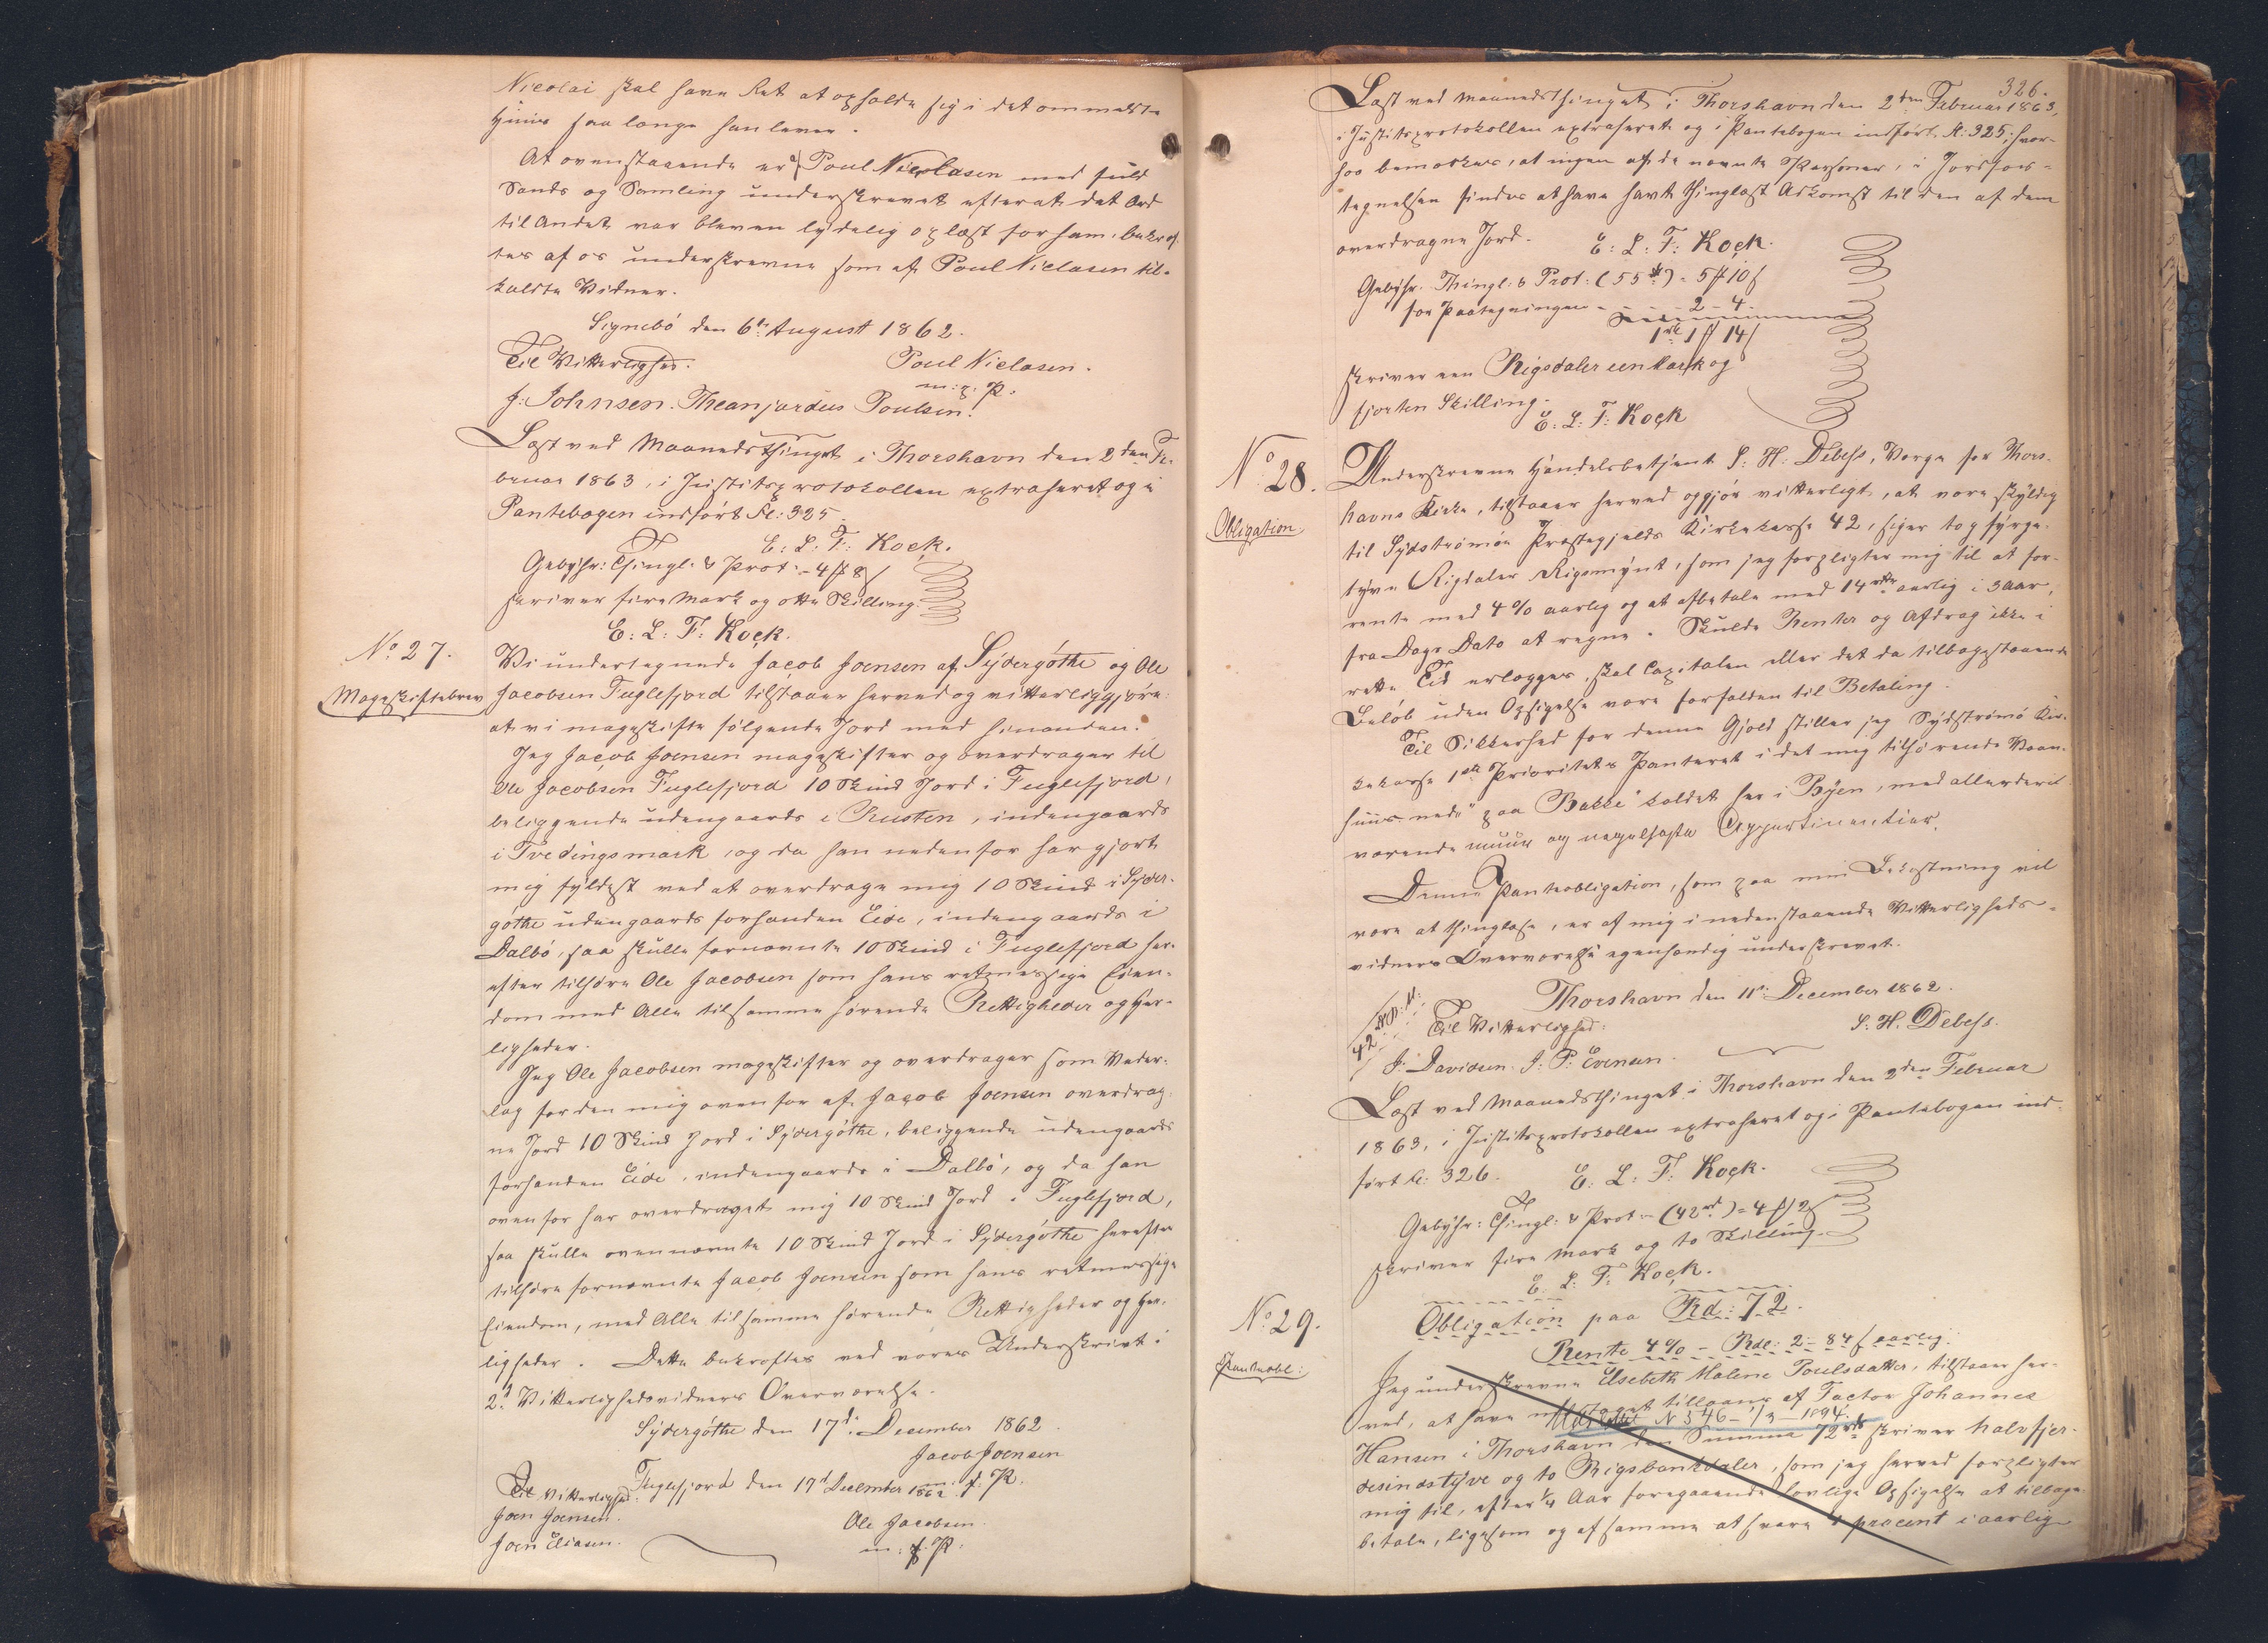 Nicolai skal have Ret at opholde sig i det ommeldte
Huus saa længe han lever.
At ovenstaaende er af Poul Nicolasen med fuld
Sands og Samling underskrevet efterat det Ord
til Andet var bleven lydelig oplæst for ham, bekræf-
tes af os underskrevne som af Poul Niclasen til-
kaldte Vidner.
Signebö den 6te August 1862.
Til Vitterlighed. Poul Niclasen.
m: p: P.
J: Johnsen. Theanjardus Poulsen.
Læst ved Maanedsthinget i Thorshavn den 2den Fe-
bruar 1863, i Justitsprotokollen extraheret og i
Pantebogen indført Fl: 325.
E: L: F: Kock.
Gebyhr: Thingl: & Prot: - 4 # 8 s
skriver fire Mark og otte Skilling.
E: L: F: Kock.
No. 27.
Mageskiftebrev
Vi undertegnede Jacob Joensen af Sydergøthe og Ole
Jacobsen Fuglefjord tilstaaer herved og vitterliggjøre:
at vi mageskifte følgende Jord med hinanden.
Jeg Jacob Joensen mageskifter og overdrager til
Ole Jacobsen Fuglefjord 10 Skind Jord i Fuglefjord,
beliggende udengaards i Rusten, indengaards
i Tvedingsmark, og da han nedenfor har gjort
mig fyldest ved at overdrage mig 10 Skind i Syder-
gøthe udengaards forhanden Eide, indengaards i
Dalbó, saa skulle fornævnte 10 Skind i Fuglefjord her-
efter tilhøre Ole Jacobsen som hans retmessige Eien-
dom med Alle tilsamme hørende Rettigheder og Her-
ligheder.
Jeg Ole Jacobsen mageskifter og overdrager som Veder-
lag for den mig ovenfor af Jacob Joensen overdrag-
ne Jord 10 Skind Jord i Sydergøthe, beliggende udengaards
forhanden Eide, indengaards i Dalbó, og da han
ovenfor har overdraget mig 10 Skind Jord i Fuglefjord,
saa skulle ovennævnte 10 Skind Jord i Sydergøthe herefter
tilhøre fornævnte Jacob Joensen som hans retmessige
Eiendom, med Alle tilsamme hørende Rettigheder og Her-
ligheder. Dette bekræftes ved vores Underskrivt i
2de Vitterlighedsvidners Overværelse.
Sydergøthe den 17d: December 1862.
Jacob Joensen
m. f. P.
Fuglefjord den 17d December 1862.
Til Vitterlighed:
Joen Joensen. Ole Jacobsen
Joen Eliasen. m: f: P:
326.
Læst ved Maanedsthinget i Thorshavn den 2den Februar 1863,
i Justitsprotokollen extraheret og i Pantebogen indført Fl: 325; hvor-
hos bemærkes, at ingen af de nævnte Personer, i Jordfor-
tegnelsen findes at have havt thinglæst Adkomst til den af dem
overdragne Jord. E: L: F: Kock.
Gebyhr. Thingl: & Prot: (55 rd) - 5 # 10 s
for Paategningen - 2 - 4.
1 rd 1 # 14 s
skriver een Rigsdaler een Mark og
fjorten Skilling.
E: L: F: Kock
No. 28.
Obligation.
Underskrevne Handelsbetjent S: H: Debess, Værge for Thors-
havns Kirke, tilstaaer herved og gjør vitterligt, at være skyldig
til Sydstrømøe Præstegjelds Kirkekasse 42, siger to og fyrge-
tyve Rigdaler Rigsmynt, som jeg forpligter mig til at for-
rente med 4 % aarlig og at afbetale med 14 rdlr aarlig i 3 Aar,
fra Dags Dato at regne. Skulde Renter og Afdrag ikke i
rette Tid erlægges, skal Capitalen eller det da tilbagestaaende
Beløb uden Opsigelse være forfalden til Betaling.
Til Sikkerhed for denne Gjæld stiller jeg Sydstrømø Kir-
kekasse 1ste Prioritets Panteret i det mig tilhørende Vaan-
huus nede "paa Bakke" kaldet her i Byen, med allerderd
værende muur og nagelfaste Appertinentier.
Denne Panteobligation, som paa min Bekostning vil
være at thinglæse, er af mig i nedenstaaende Vitterligheds-
vidners Overværelse egenhændig underskrevet.
Thorshavn den 11te December 1862.
42 rd R: M:
Til Vitterlighed: S: H. Debess.
J: Davidsen. J: P: Evensen.
Læst ved Maanedsthinget i Thorshavn den 2den Februar
1863, i Justitsprotokollen extraheret og i Pantebogen ind-
ført Fl: 326. E: L: F: Kock.
Gebyhr: Thingl: & Prot: - (42 rd) = 4 # 2 s
skriver fire Mark og to Skilling.
E: L: F: Kock.
No. 29.
Panteobl:
Obligation paa Rd: 72.
Rente 4 % - Rdl: 2 - 84 s aarlig.
Jeg underskrevne Elsebeth Malene Poulsdatter, tilstaaer her-
ved, at have modtaget tillaans af Factor Johannes
N 346 - 1/3 - 1894.
Hansen i Thorshavn den Summa 72 rd skriver halvfjer-
desindstyve og to Rigsbankdaler, som jeg herved forpligter
mig til, efter 1/4 Aar foregaaende lovlige Opsigelse at tilbage-
betale, ligesom og af samme at svare 4 procent i aarlig